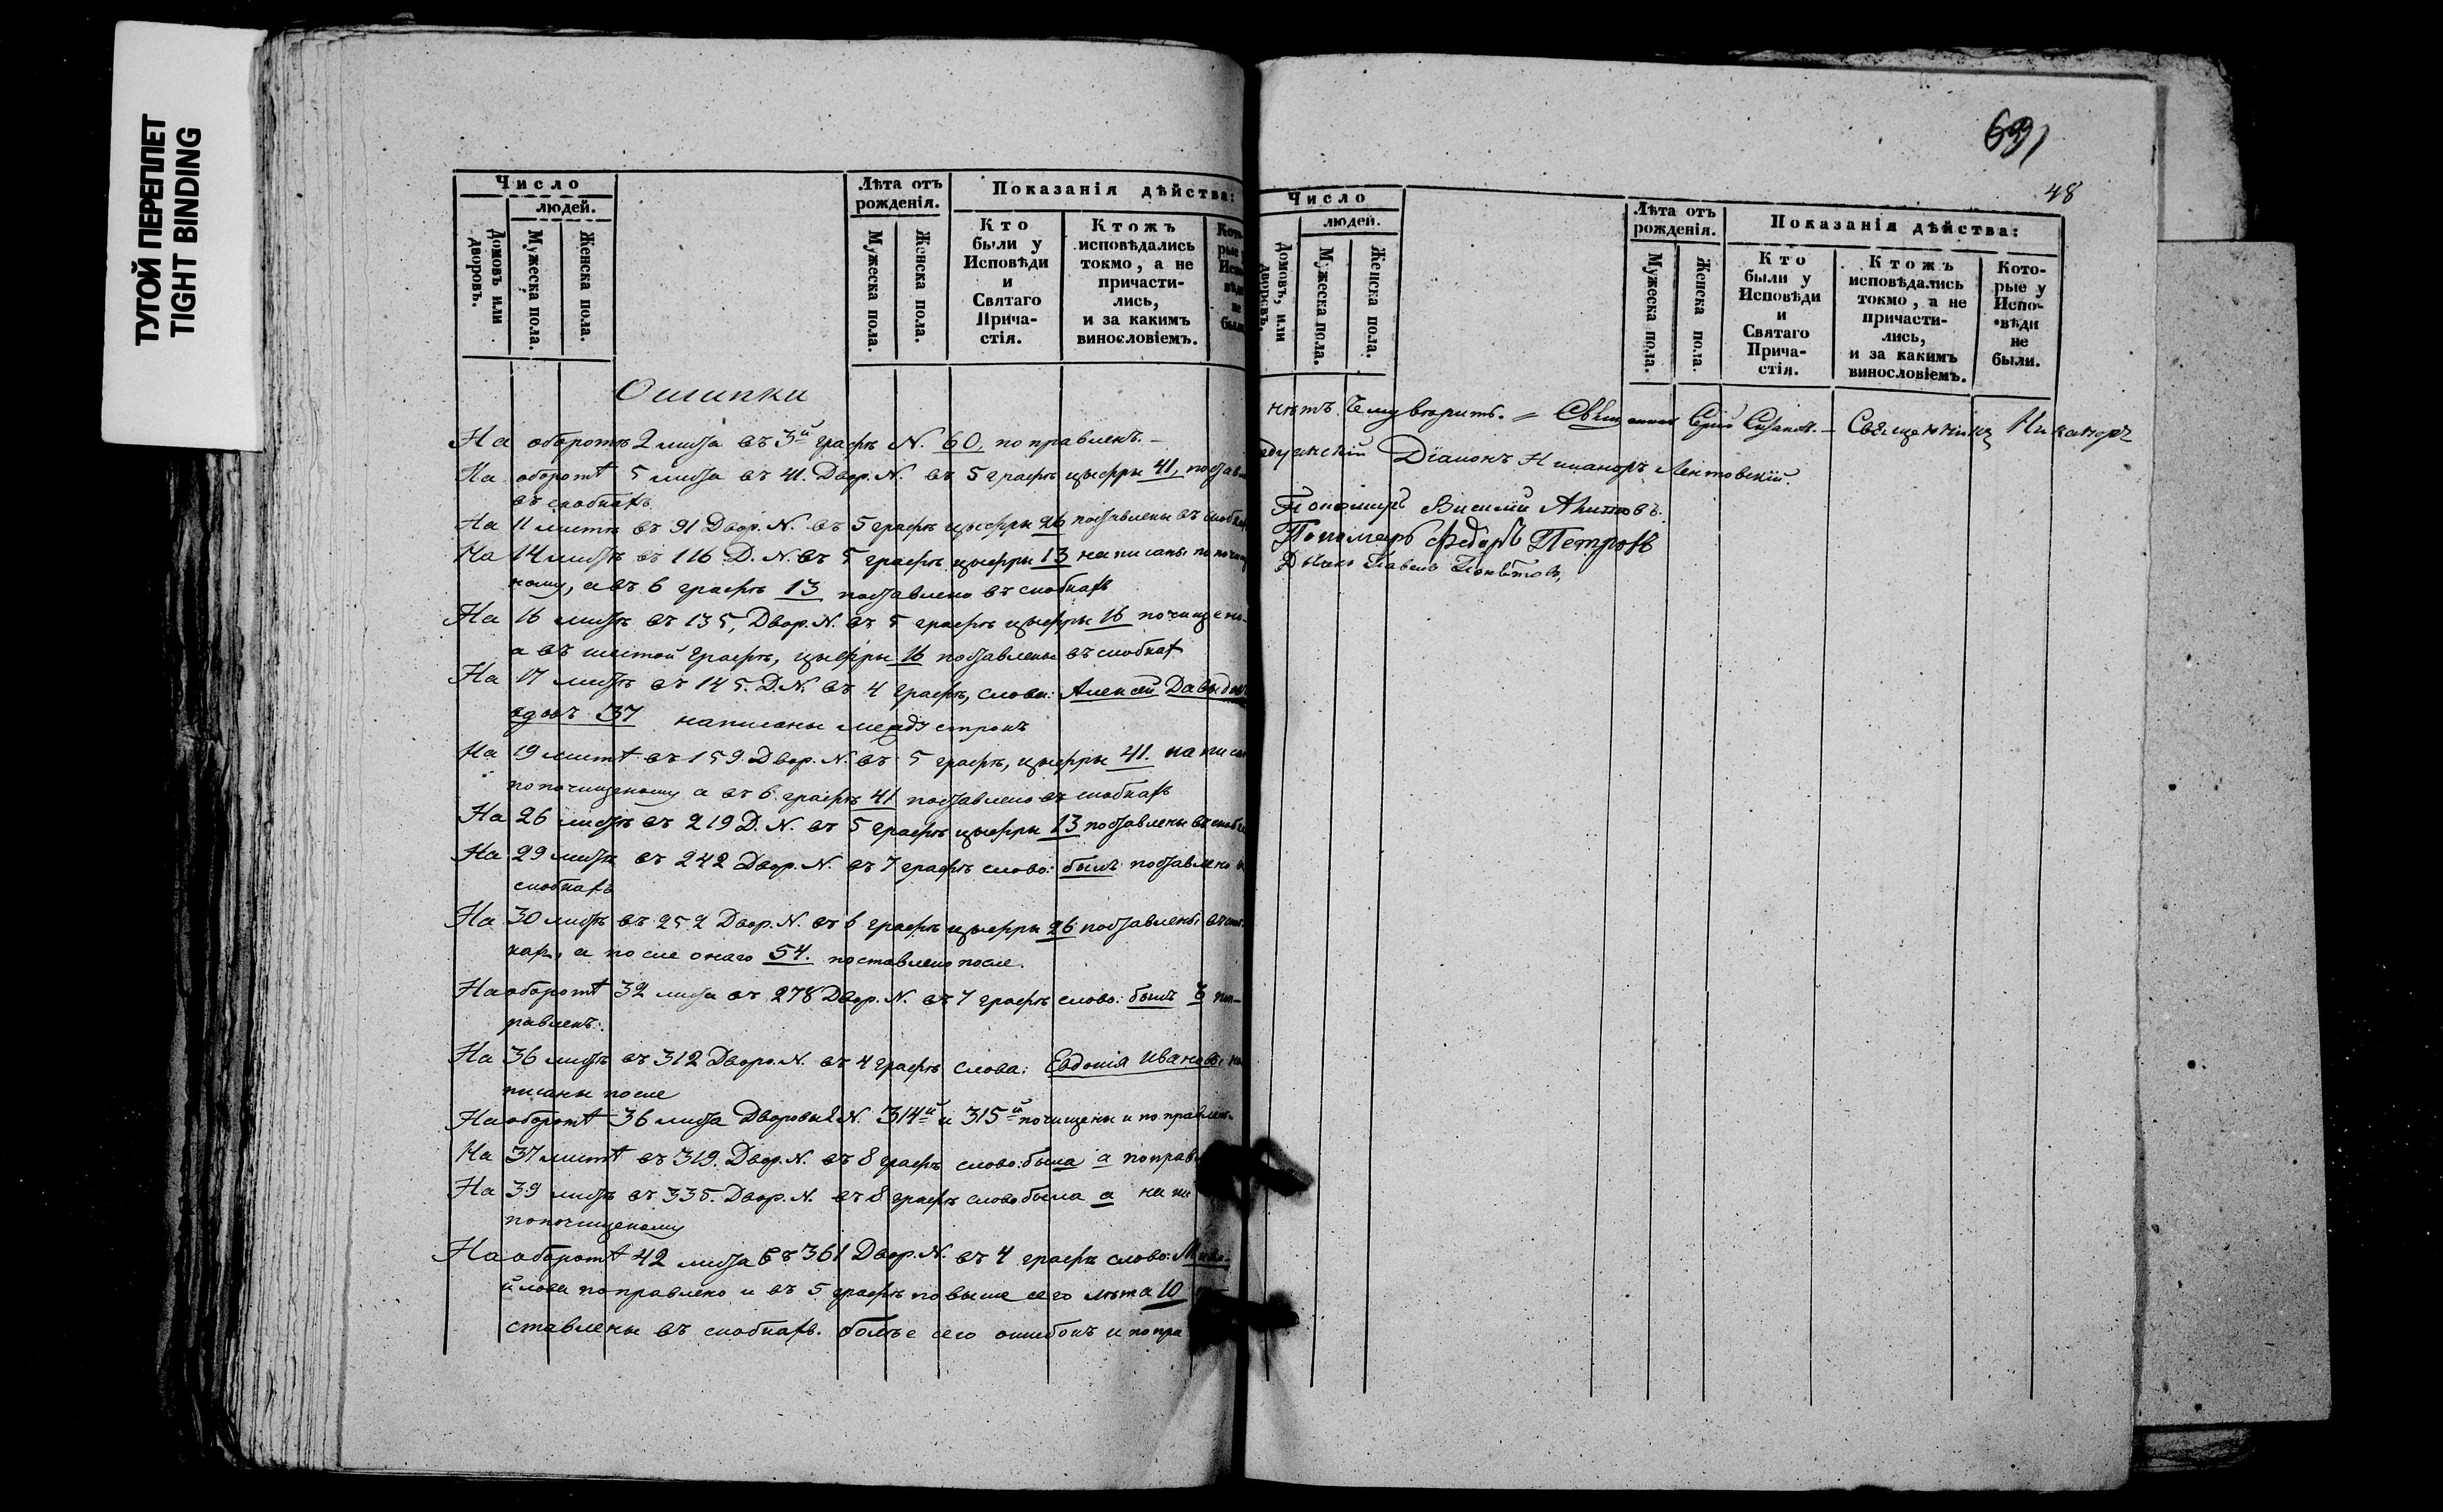 ТУГОЙ ПЕРЕПЛЕТ
TIGHT BINDING
Число
людей.
Домовъ или дворовъ.
Мужеска пола.
Женска пола.
Лѣта отъ рожденія.
Мужеска пола.
Женска пола.
Показанія дѣйства:
Кто были у Исповѣди и Святаго Причастія.
Ктожъ исповѣдались токмо, а не причастились, и за какимъ винословіемъ.
Ошипки
На оборотѣ 2 листа въ 3й графѣ N. 60, поправленъ. –
На оборотѣ 5 листа въ 41. Двор. N. въ 5 графѣ цыфры 41,
въ скобкахъ
На 11 листѣ въ 91 Двор. N. въ 5 графѣ цыфры 26 поставлены въ
На 14 листѣ въ 116 Д. N. въ 5 графѣ цыфры 13 написаны
ному, а въ 6 графѣ 13 поставлено въ скобкахъ
На 16 листѣ въ 135, Двор. N. въ 5 графѣ цыфры 16
а въ шестой графѣ, цыфры 16 поставлены въ скобкахъ
На 17 листѣ въ 145. Д. N. въ 4 графѣ, слова: Алексей
вдовъ 37 написаны межъ строкъ
На 19 листѣ въ 159. Двор. N. въ 5 графѣ, цыфры 41.
по почищеному а въ 6. графѣ 41 поставлено въ скобкахъ
На 26 листѣ въ 219 Д. N. въ 5 графѣ цыфры 13 поставлены
На 29 листѣ въ 242 Двор. N. въ 7 графѣ слово: былъ поставлено
скобкахъ
На 30 листѣ въ 252 Двор. N. въ 6 графѣ цыфры 26 поставлены
а после онаго 54. поставлено после.
На оборотѣ 32 листа въ 278 Двор. N. въ 7 графѣ слово: былъ ъ поп-
равленъ.
На 36 листѣ въ 312 Дворо. N. въ 4 графѣ слова: Евдокія Иванова на
писаны после
На оборотѣ 36 листа Дворовые N. 314й и 315й почищены и
На 37 листѣ въ 319. Двор. N. въ 8 графѣ слово: была а
На 39 листѣ въ 335. Двор. N. въ 8 графѣ слово была а
по почищеному
На оборотѣ 42 листа въ 361 Двор. N. въ 4 графѣ слово:
йлова поправлено и въ 5 графѣ повыше сего лѣта 10
ставлены въ скобкахъ. болѣе сего ошибокъ и
48
Число
людей.
Домовъ, или дворовъ.
Мужеска пола.
Женска пола.
Лѣта отъ рожденія.
Мужеска пола.
Женска пола
Показанія дѣйства:
Кто были у Исповѣди и Святаго Причастія.
Ктожъ исповѣдались токмо, а не причастились, и за какимъ винословіемъ.
Которые у Исповѣди не были.
нѣтъ. Священникъ Никаноръ
Діаконъ Никаноръ Лентовскій.
Пономарь
Пономарь Федоръ Петровъ
Павелъ